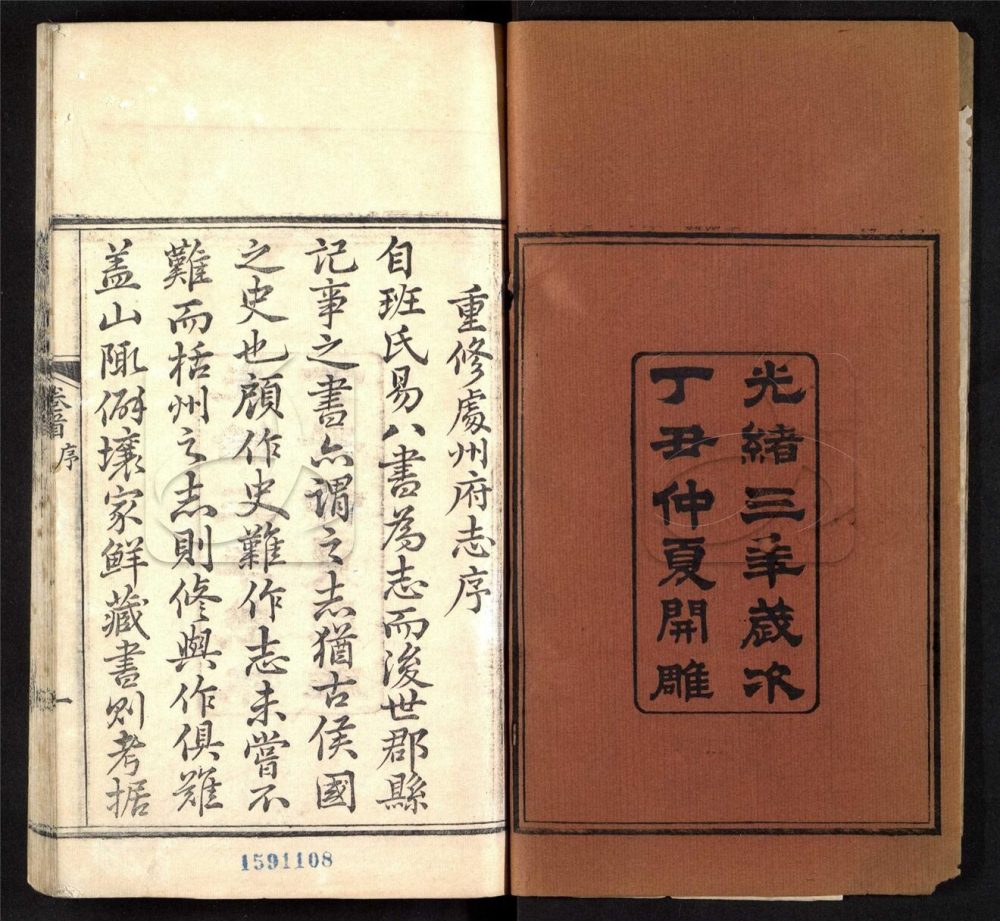 光緒三年歲次
丁丑仲夏開雕
重修處州府志序
自班氏易八書為志而後世郡縣
記事之書亦謂之志猶古侯國
之史也顧作史難作志未嘗不
難而括州之志則修與作俱難
蓋山陬僻壤家鮮藏書則考据
卷首 序
一
1591108